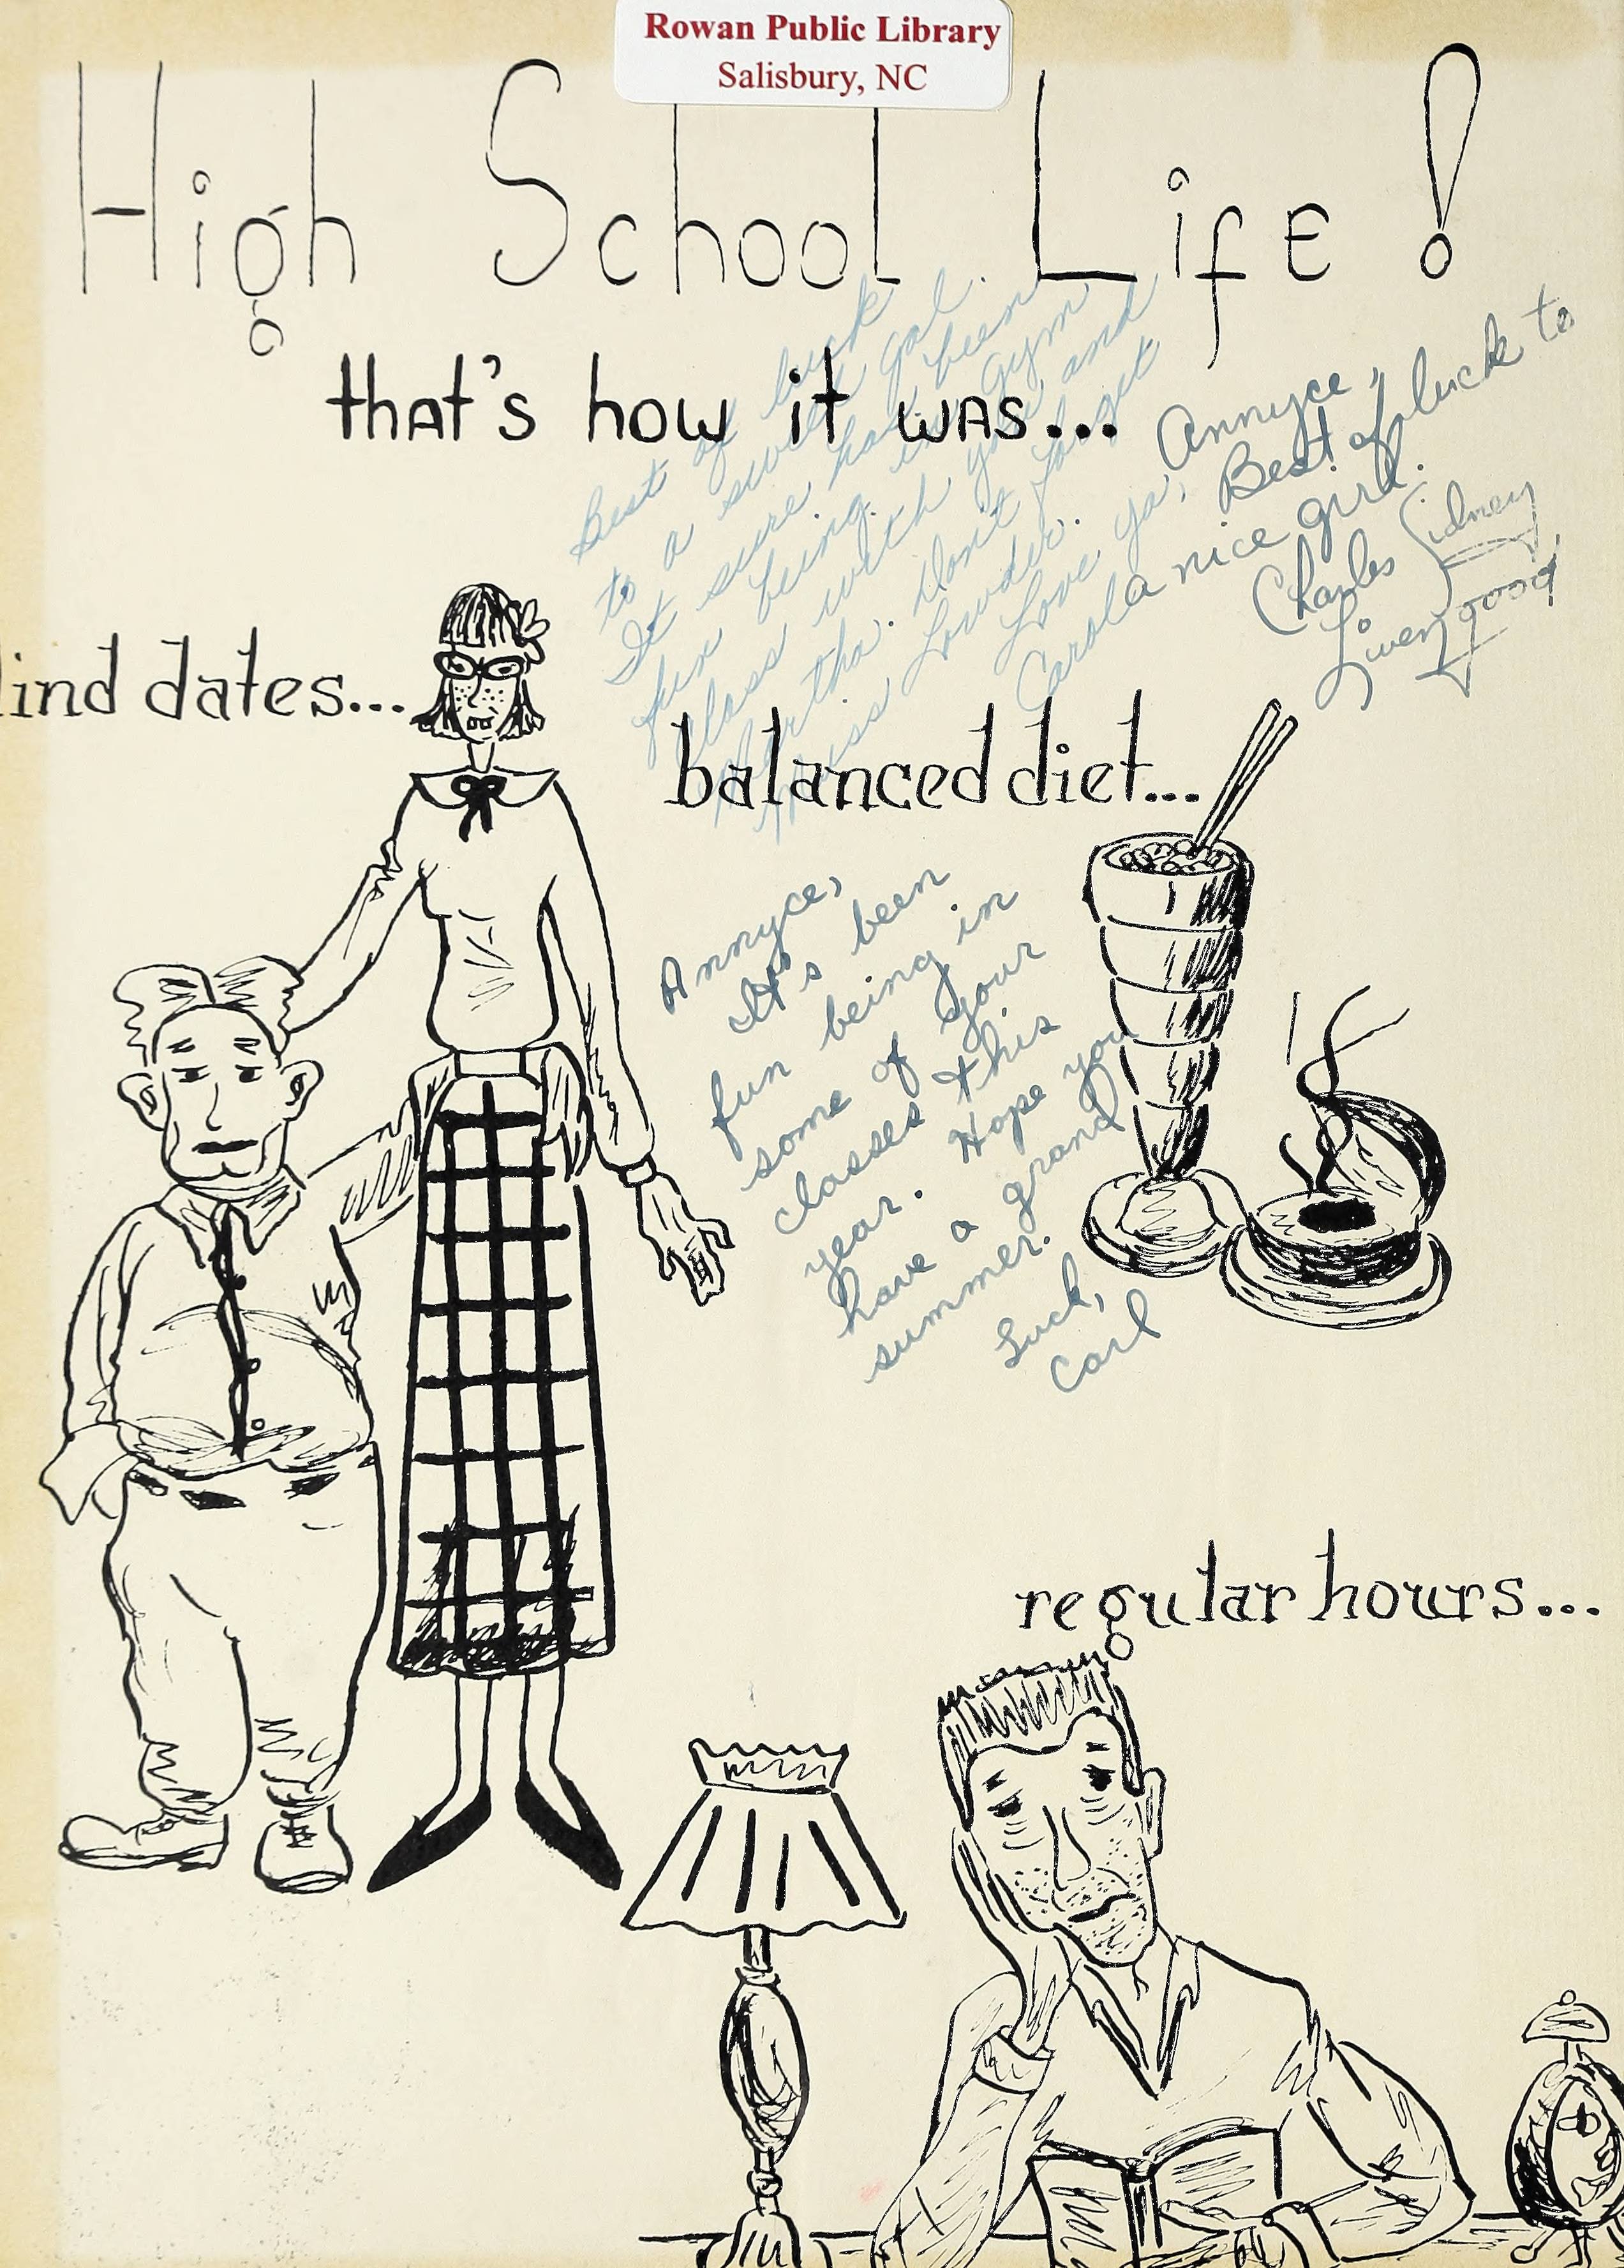 Rowan Public Library
Salisbury, NC
High School LifE!
that's how it was...
Best of luck
to a sweet gal.
It sure has been
fun being in Gym
class with you and
Martha. Don't forget
Miss Lowder.
Love ya,
Carol
Annyce,
Best of luck to
a nice girl.
Charles Sidney
Livengood
lind dates...
balanced diet...
Annyce,
It's been
fun being in
some of your
classes this
year. Hope you
have a grand
summer.
Luck,
Carl
regular hours...